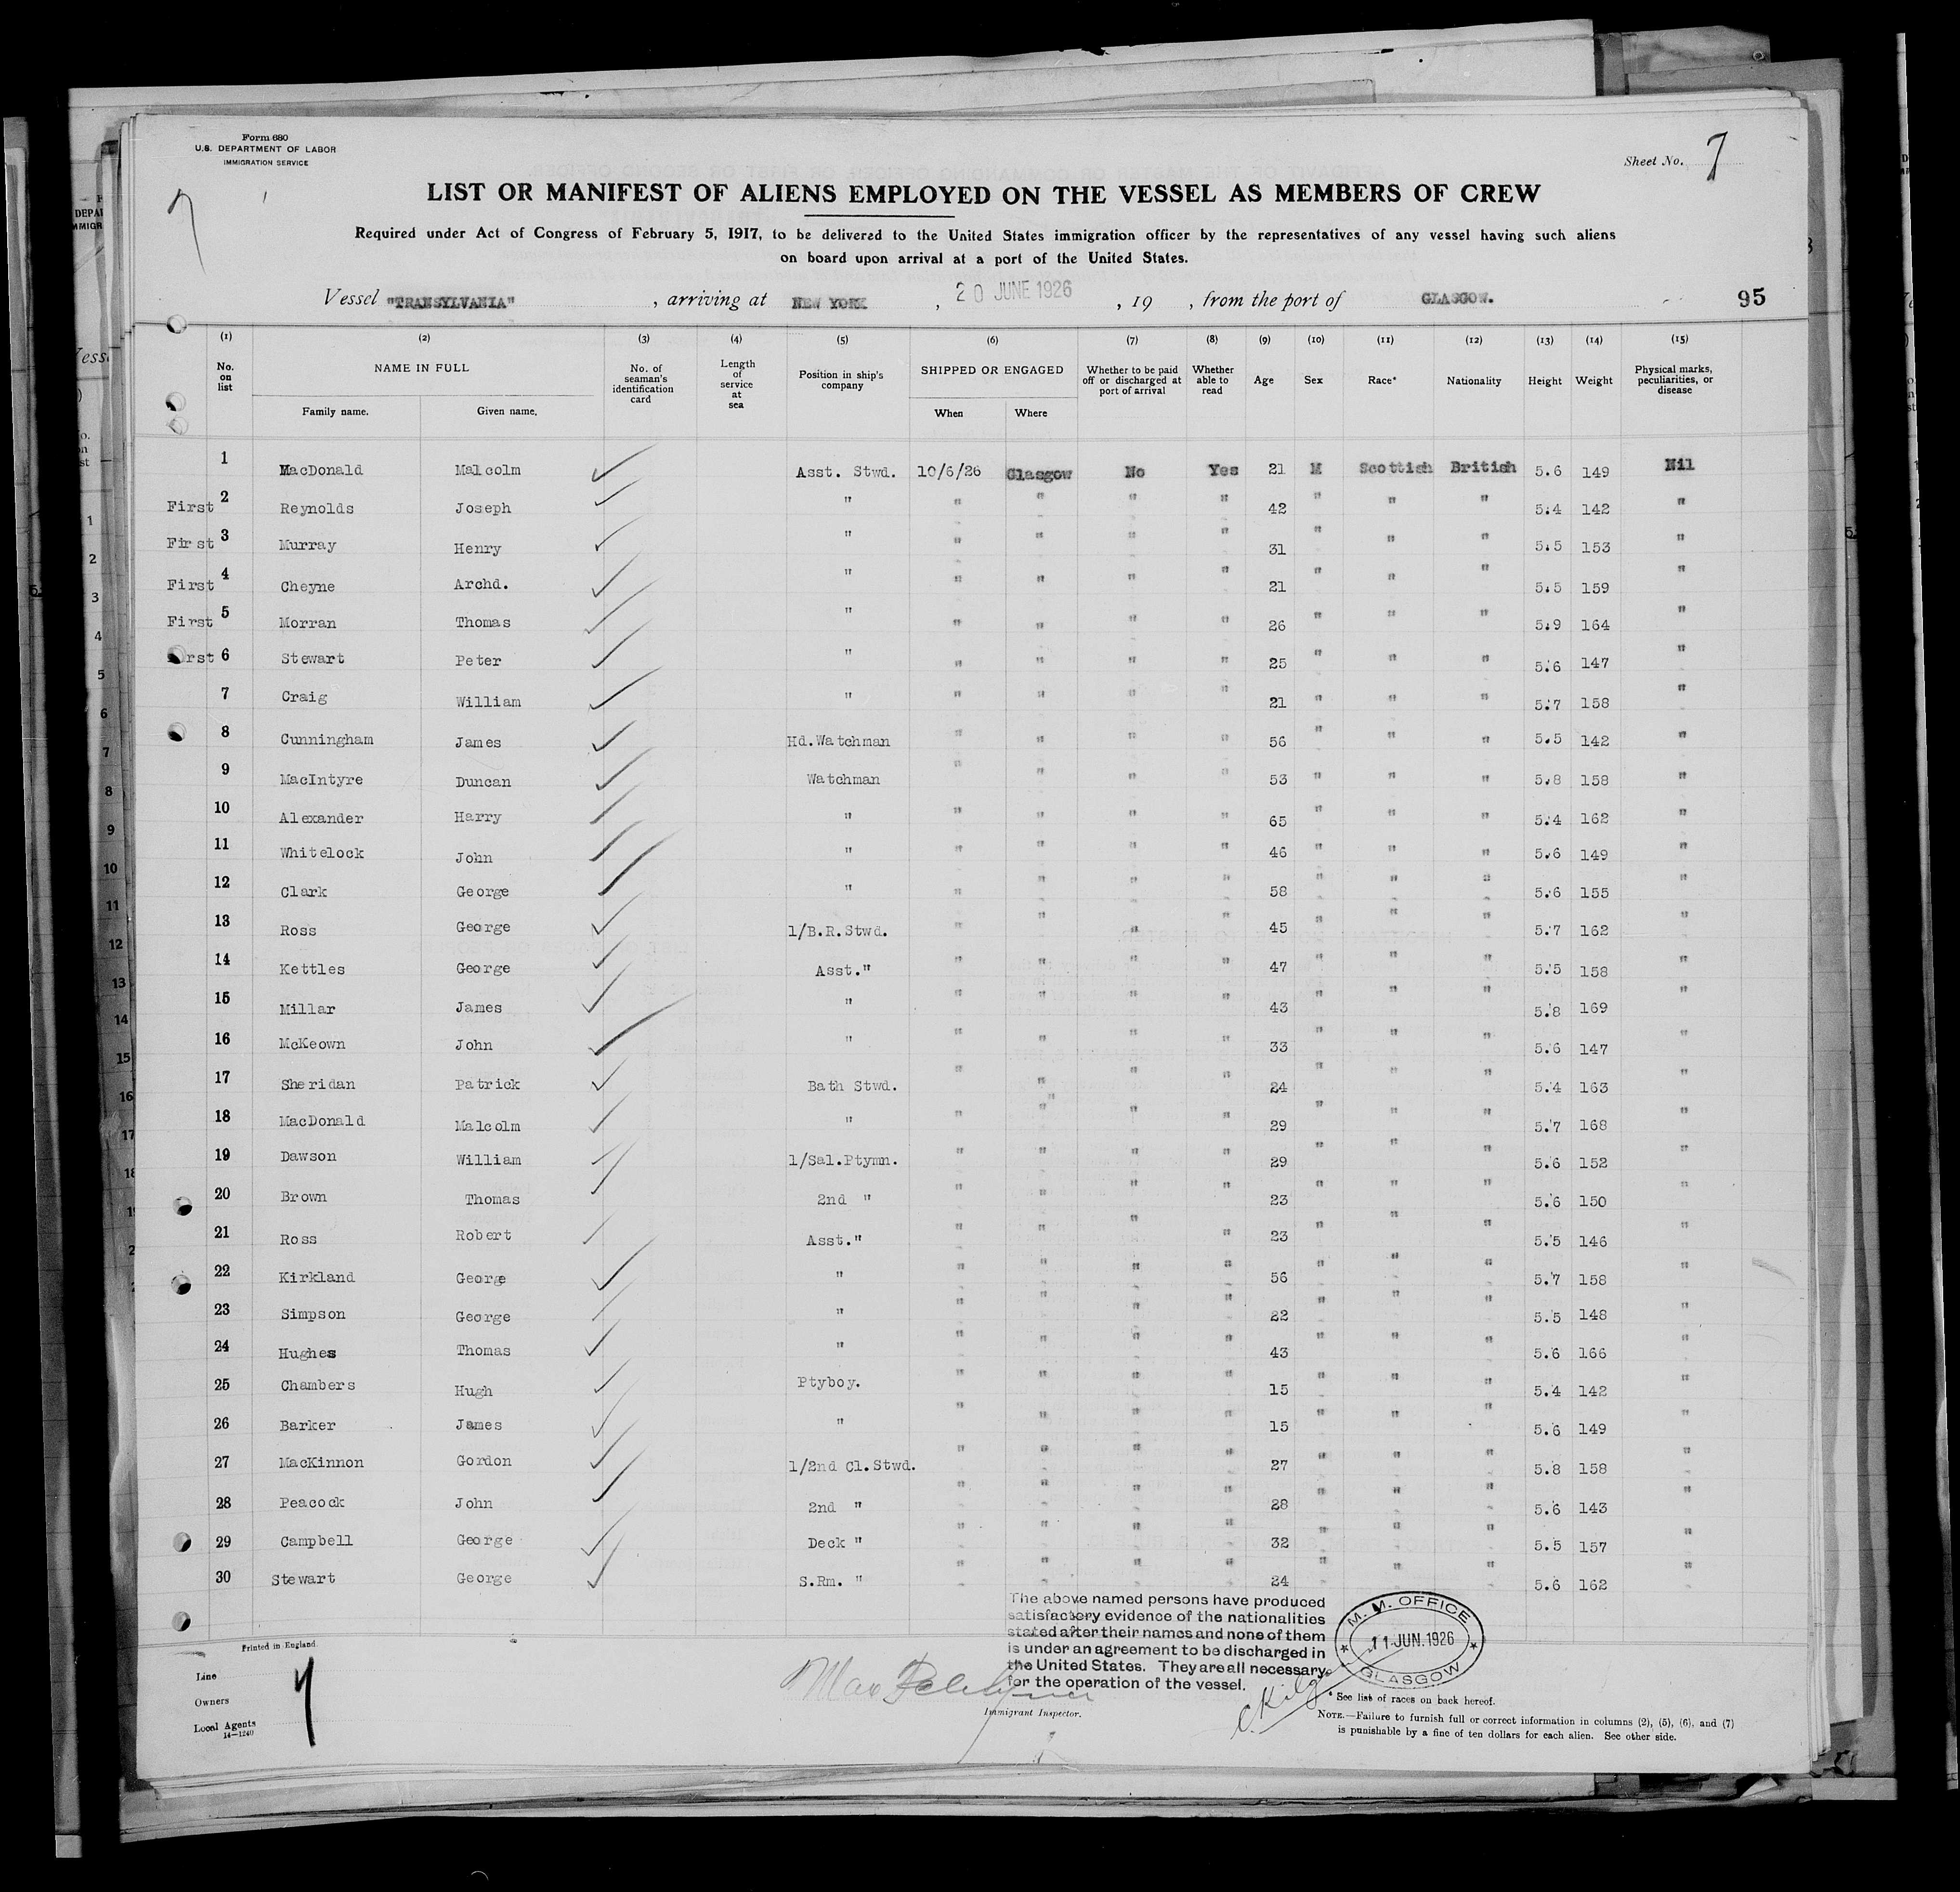 Form 680
U.S. DEPARTMENT OF LABOR
IMMIGRATION SERVICE
Sheet No. 7
7
LIST OR MANIFEST OF ALIENS EMPLOYED ON THE VESSEL AS MEMBERS OF CREW
Required under Act of Congress of February 5, 1917, to be delivered to the United States immigration officer by the representatives of any vessel having such aliens
on board upon arrival at a port of the United States.
Vessel "TRANSYLVANIA", arriving at NEW YORK, 20 JUNE 1926, 19 , from the port of GLASGOW. 95
(1) (2) (3) (4) (5) (6) (7) (8) (9) (10) (11) (12) (13) (14) (15)
No. on list NAME IN FULL Family name. Given name. No. of seaman's identification card Length of service at sea Position in ship's company SHIPPED OR ENGAGED When Where Whether to be paid off or discharged at port of arrival Whether able to read Age Sex Race* Nationality Height Weight Physical marks, peculiarities, or disease
1 MacDonald Malcolm Asst. Stwd. 10/6/26 Glasgow No Yes 21 M Scottish British 5.6 149 Nil
First 2 Reynolds Joseph " " " " " 42 " " " 5.4 142 "
First 3 Murray Henry " " " " " 31 " " 5.5 153 "
First 4 Cheyne Archd. " " " " " 21 " " " 5.5 159 "
First 5 Morran Thomas " " " " " 26 " " " 5.9 164 "
rst 6 Stewart Peter " " " " " 25 " " " 5.6 147 "
7 Craig William " " " " " 21 " " " 5.7 158 "
8 Cunningham James Hd.Watchman " " " " 56 " " " 5.5 142 "
9 MacIntyre Duncan Watchman " " " " 53 " " " 5.8 158 "
10 Alexander Harry " " " " " 65 " " " 5.4 162 "
11 Whitelock John " " " " " 46 " " " 5.6 149 "
12 Clark George " " " " " 58 " " " 5.6 155 "
13 Ross George 1/B.R.Stwd. " " " " 45 " " " 5.7 162 "
14 Kettles George Asst." " " " " 47 " " " 5.5 158 "
15 Millar James " " " " " 43 " " " 5.8 169 "
16 McKeown John " " " " " 33 " " " 5.6 147 "
17 Sheridan Patrick Bath Stwd. " " " " 24 " " " 5.4 163 "
18 MacDonald Malcolm " " " " " 29 " " " 5.7 168 "
19 Dawson William 1/Sal.Ptymn. " " " " 29 " " " 5.6 152 "
20 Brown Thomas 2nd " " " " " 23 " " " 5.6 150 "
21 Ross Robert Asst." " " " " 23 " " " 5.5 146 "
22 Kirkland George " " " " " 56 " " " 5.7 158 "
23 Simpson George " " " " " 22 " " " 5.5 148 "
24 Hughes Thomas " " " " " 43 " " " 5.6 166 "
25 Chambers Hugh Ptyboy. " " " " 15 " " " 5.4 142 "
26 Barker James " " " " " 15 " " " 5.6 149 "
27 MacKinnon Gordon 1/2nd Cl.Stwd. " " " " 27 " " " 5.8 158 "
28 Peacock John 2nd " " " " " 28 " " " 5.6 143 "
29 Campbell George Deck " " " " " 32 " " " 5.5 157 "
30 Stewart George S.Rm. " " " " " 24 " " " 5.6 162 "
The above named persons have produced
satisfactory evidence of the nationalities
stated after their names and none of them
is under an agreement to be discharged in
the United States. They are all necessary
for the operation of the vessel.
M. M. OFFICE
11 JUN. 1926
GLASGOW
Printed in England.
Line
Owners
Local Agents
14—1240
7
Immigrant Inspector.
* See list of races on back hereof.
NOTE.—Failure to furnish full or correct information in columns (2), (5), (6), and (7)
is punishable by a fine of ten dollars for each alien. See other side.